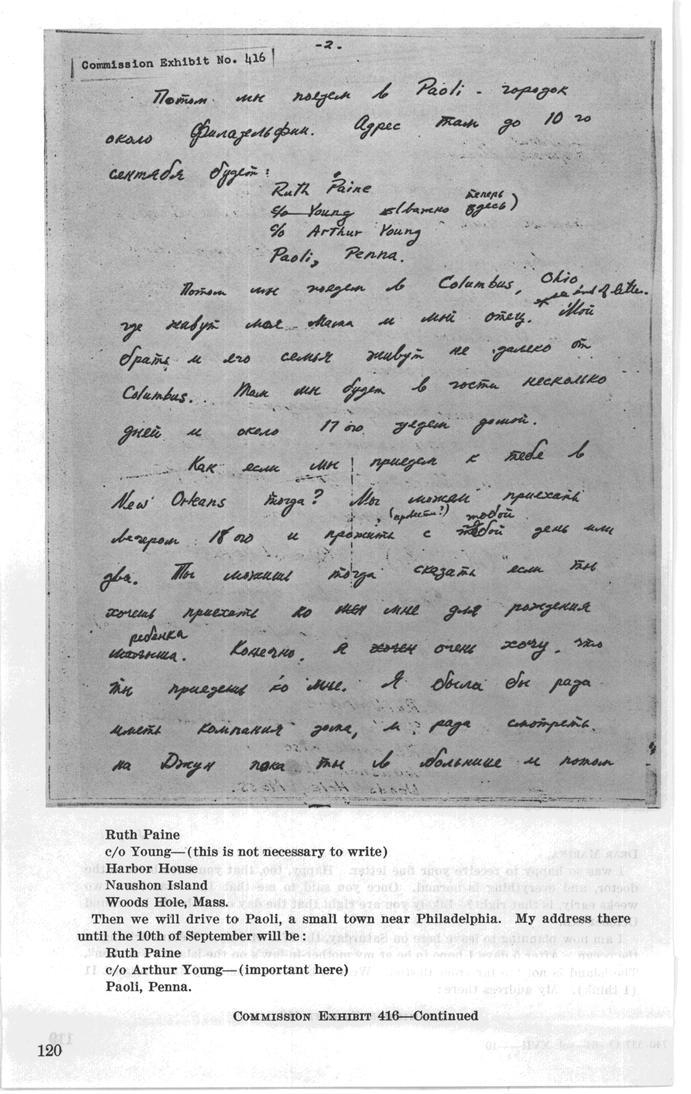 -2.
Commission Exhibit No. 416
Потом мы поедем в Paoli - городок
около Филадельфии. Адрес там до 10 го
сентября будет:
Ruth Paine
c/o Young (важно теперь здесь)
c/o Arthur Young
Paoli, Penna.
Потом мы поедем в Columbus, Ohio
где живут моя Мама и мой отец. Мой
брать и его семья живут не далеко от
Columbus. Там мы будем в гости несколько
дней и около 17 ого уедем домой.
Как если мы приедем к тебе в
New Orleans тогда? Мы можем приехать
вечером 18 ого и прожить с тобой день или
два. Ты можишь тогда сказать если ты
хочешь приехать ко мне для рождения
ребёнка
Конечно, я очень хочу, что
ты приедешь ко мне. Я была бы рада
иметь компания дома, и рада смотреть
на Джун пока ты в больнице и потом
Ruth Paine
c/o Young—(this is not necessary to write)
Harbor House
Naushon Island
Woods Hole, Mass.
Then we will drive to Paoli, a small town near Philadelphia. My address there
until the 10th of September will be:
Ruth Paine
c/o Arthur Young—(important here)
Paoli, Penna.
COMMISSION EXHIBIT 416—Continued
120